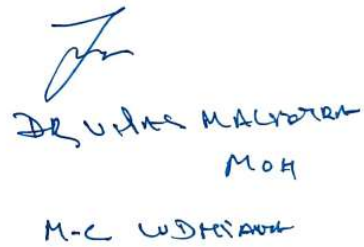 DR VIPAL MALHOTRA
MOH
M-C LUDHIANA